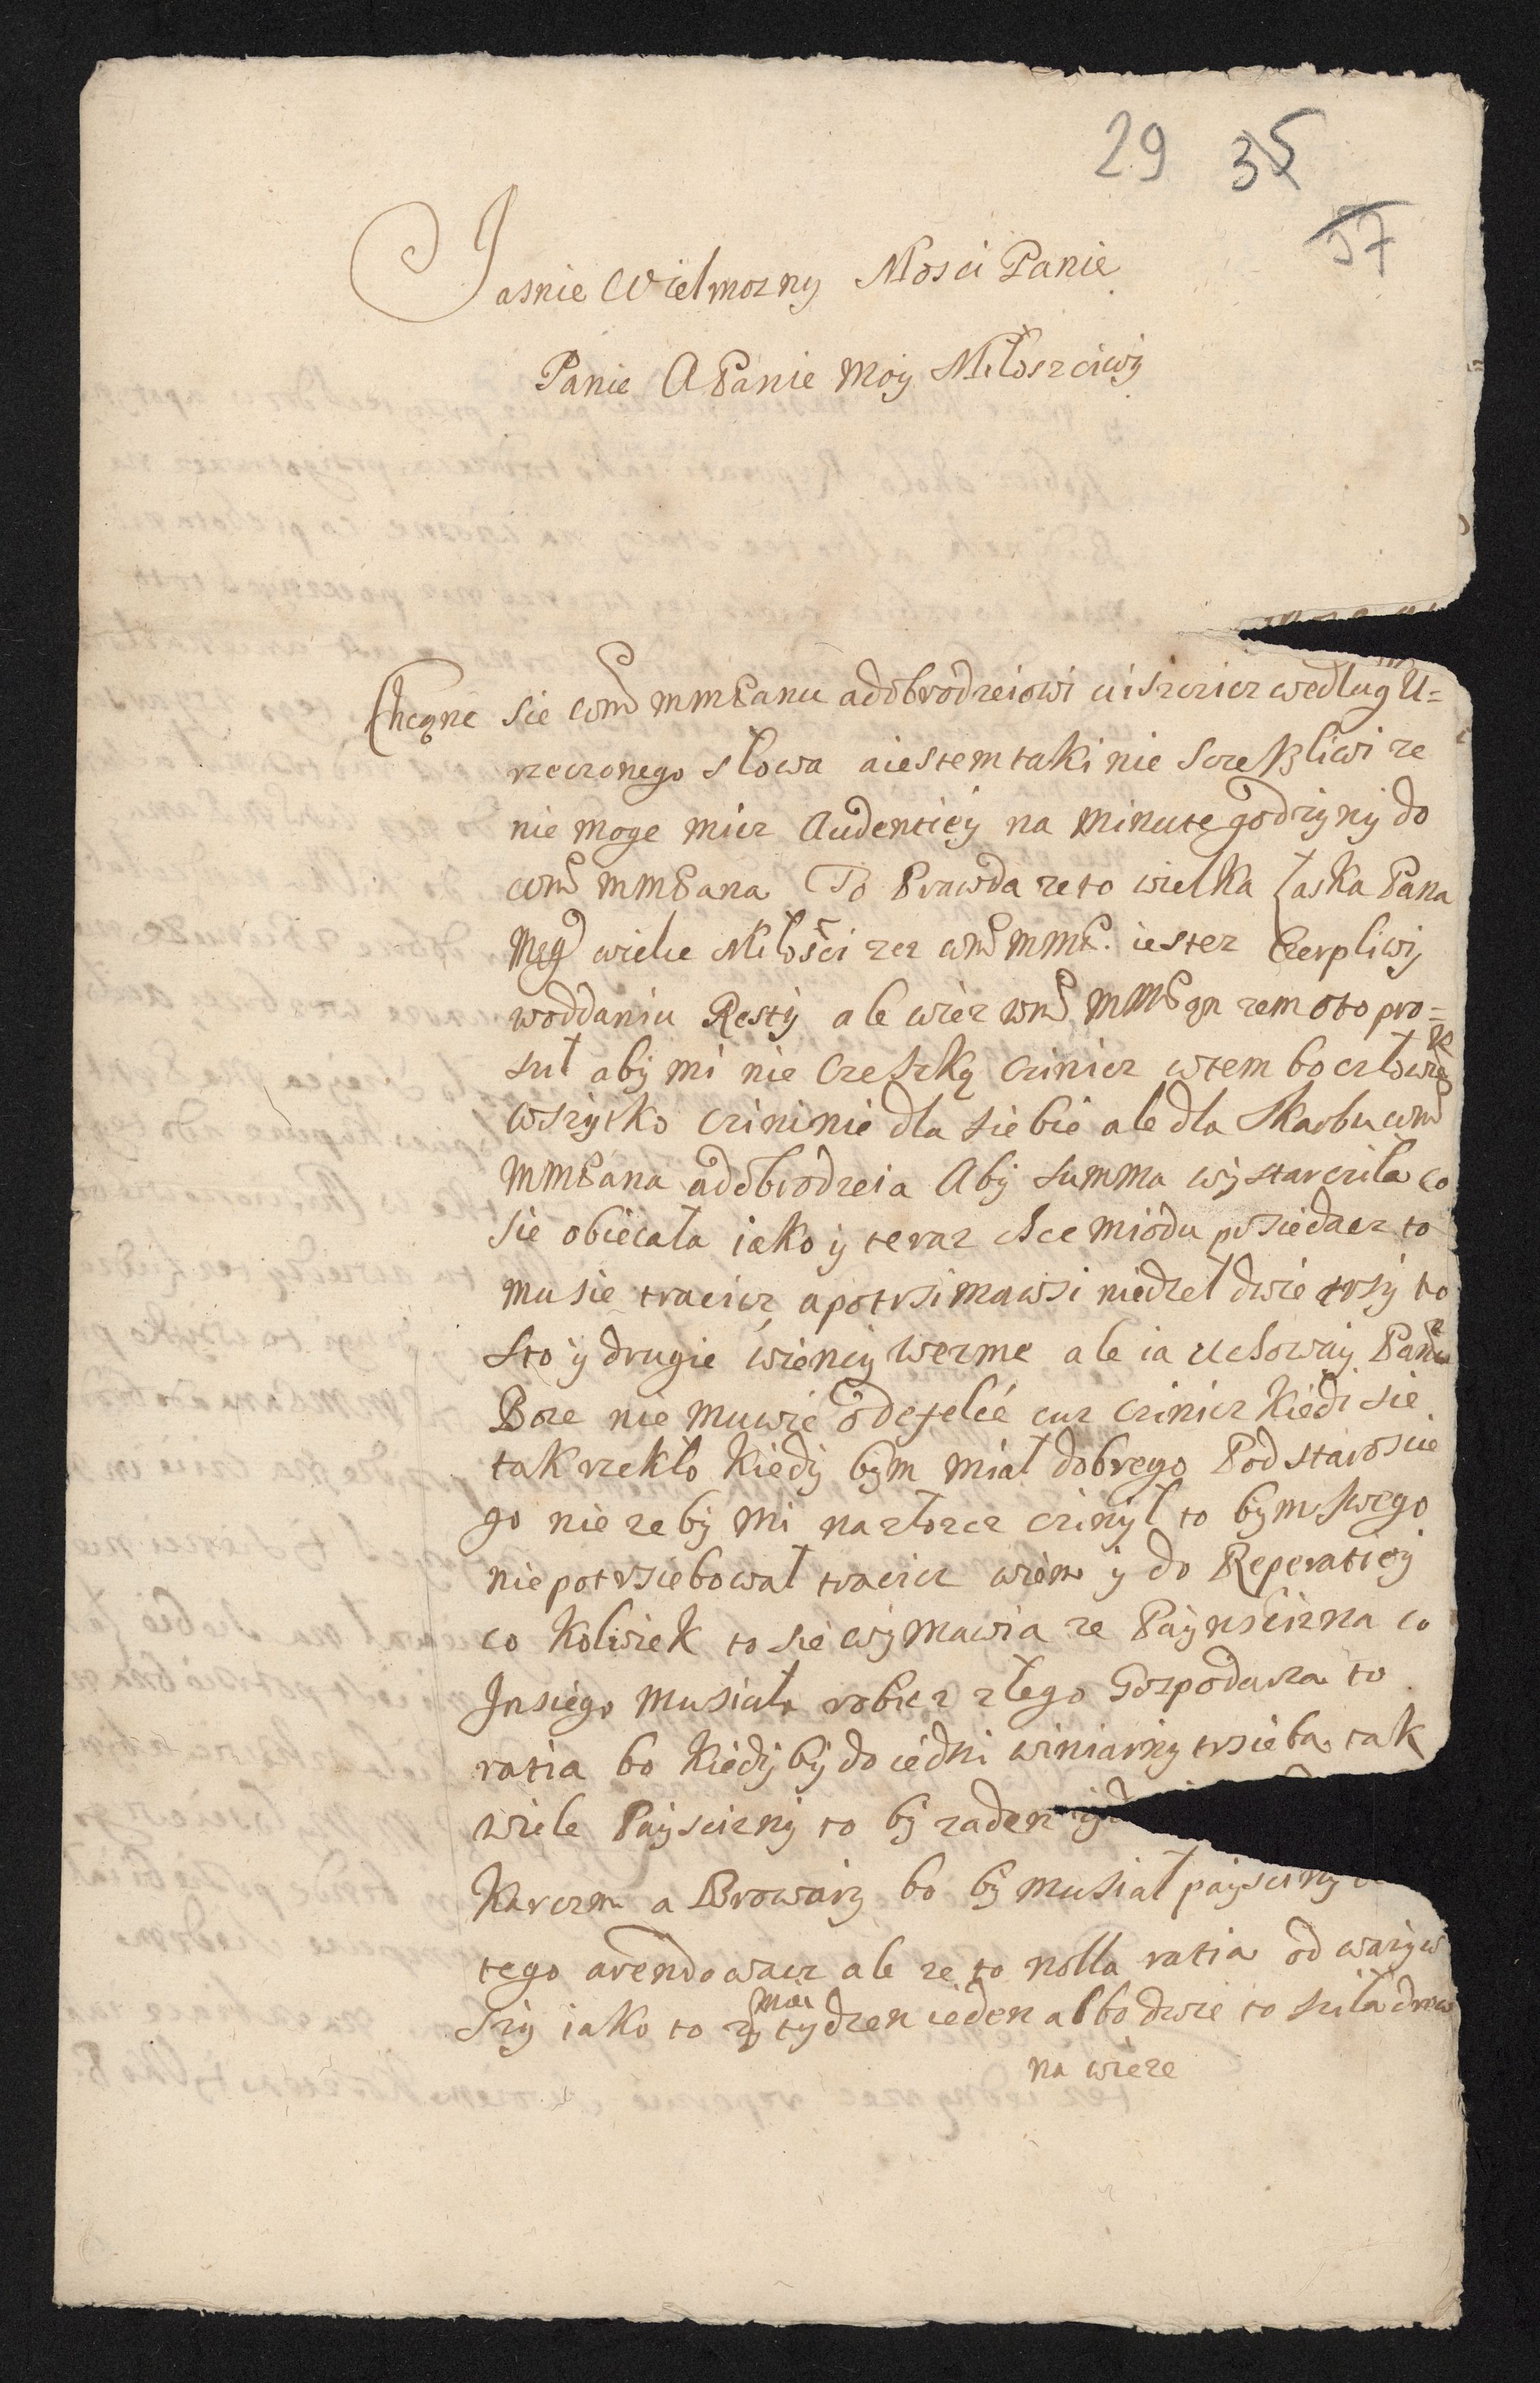 29 35
57
Jasnie Wielmozny Mosci Panie
Panie A Panie Moy Miłoszciwy
Chcąnc sie wmP mmPanu adobrodzeiowi uiszczicz według U=
rzeczonego słowa aiestem taki nie szczeßliwi ze
nie moge micz Audentiey na Minute godziny do
wmP mmPana To Prawda zeto wielka łaska Pana
wielie Miłości zez wmP mmP. iestez Czerpliwy
woddaniu Resty ale wiez wmP mmP zem oto pro=
siuł aby mi nie Czeszką czinicz wtem bo człowiek
wszytko czini nie dla siebie ale dla Skarbu wmP
mmPana adobrodzeia Aby summa wystarcziła co
sie obiecała iako y teraz chce miodu posiedacz to
musie tracicz apotrsimawsi niedzel dwie trsy to
sto y drugie wiency wezme ale ia uchoway Panie
Boze nie muwie czinicz kiedi sie
tak rzekło kiedy bym miał dobrego Podstaroscie
go nie zeby mi nazłozcz czinył to bym swego
niepotrsiebował tracicz wiem y do Reperatiey
co koliwiek to sie wymawia ze Paynscizna co
Jnsiego musiała robicz złego Gospodarza to
ratia bo kiedyby do iedni winiarny trsieba tak
wiele Payscizny to by zaden
Karczm a Browary bo by musiał payscizny
tego arendowacz ale ze to nolla ratia od warzyw
szy iako to mai tydzen ieden albo dwie to siła drew
na wieze